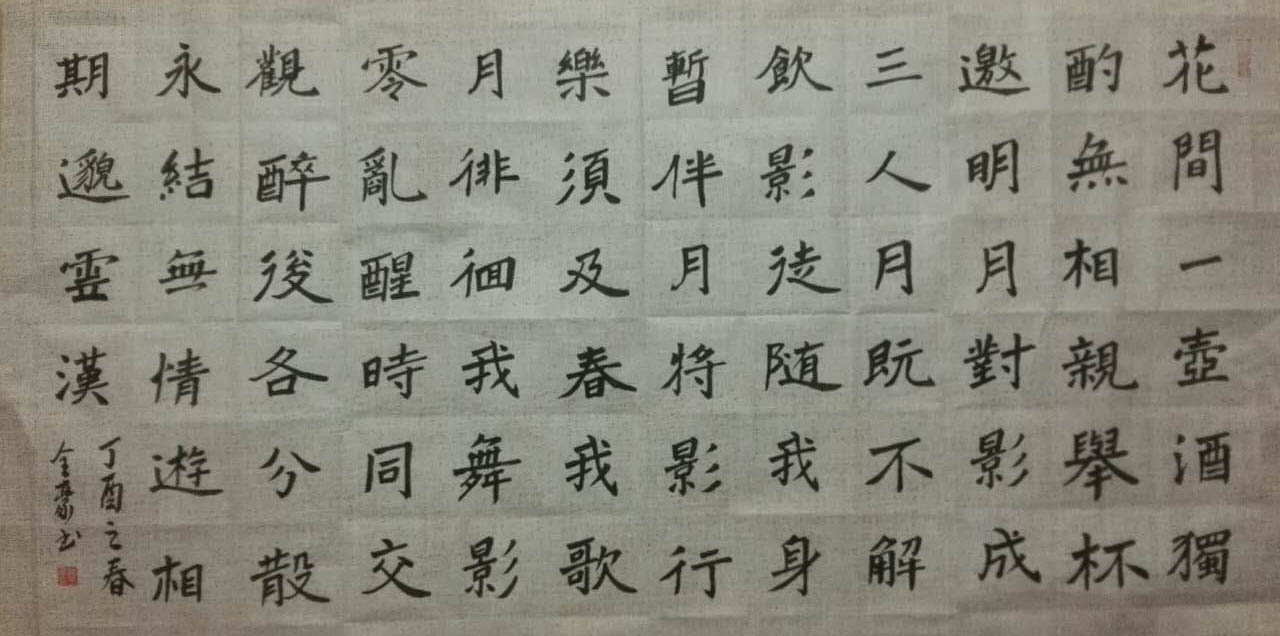 花間一壺酒獨
酌無相親舉杯
邀明月對影成
三人月既不解
飲影徒随我身
暫伴月将影行
樂須及春我歌
月徘徊我舞影
零亂醒時同交
觀醉後各分散
永結無情遊相
期邈雲漢
丁酉之春
全豪书